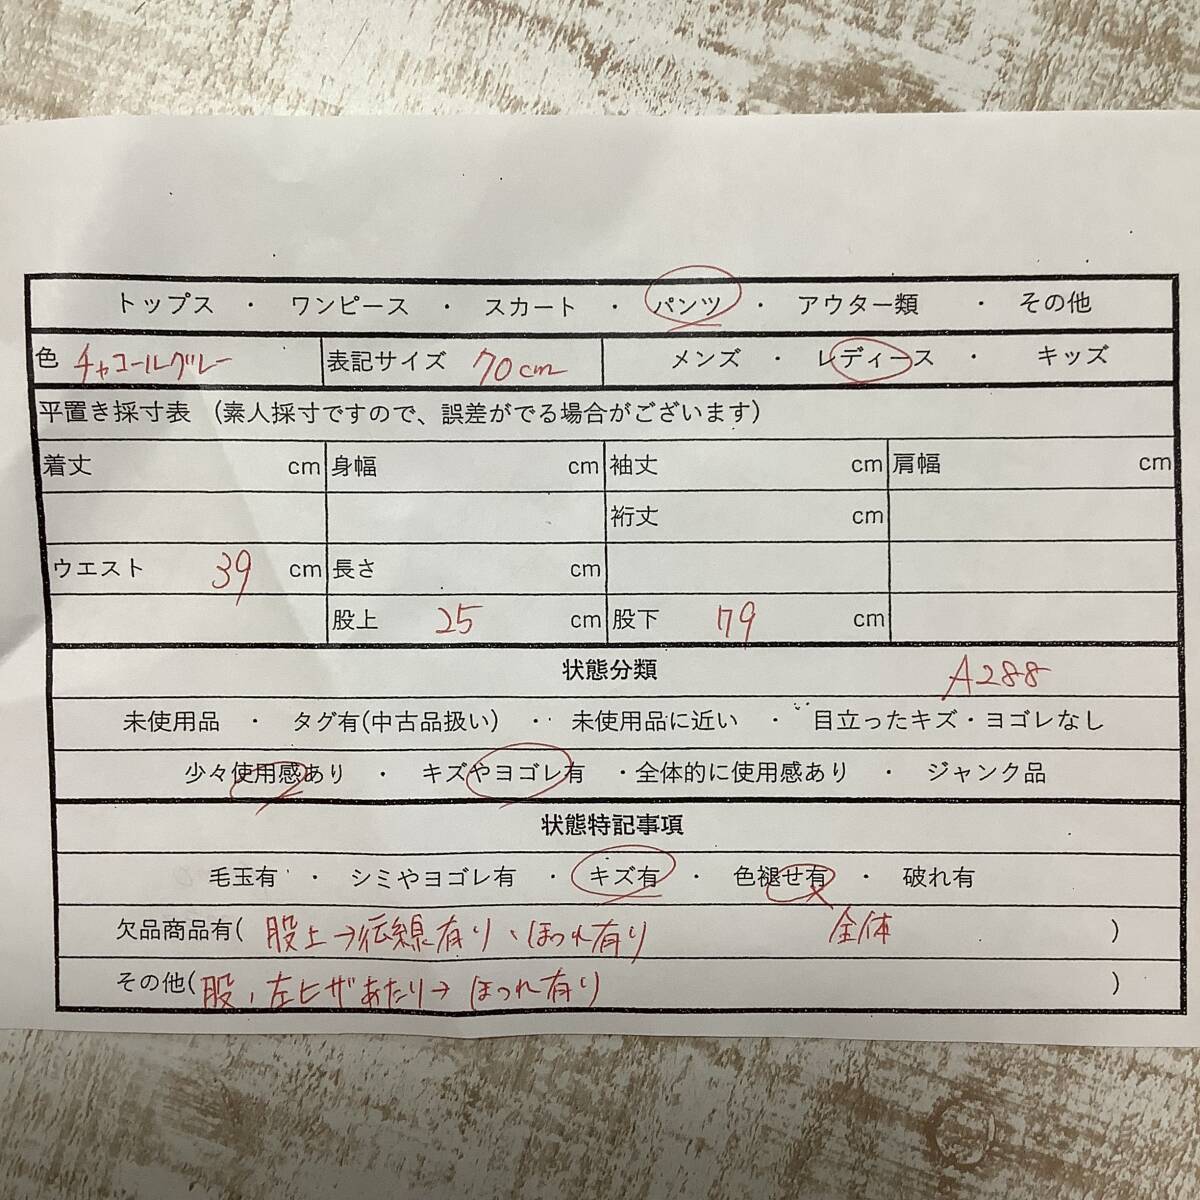 トップス ・ ワンピース ・ スカート ・ パンツ ・ アウター類 ・ その他
色 チャコールグレー 表記サイズ 70cm メンズ ・ レディース ・ キッズ
平置き採寸表 (素人採寸ですので、誤差がでる場合がございます)
着丈 cm 身幅 cm 袖丈 cm 肩幅 cm
裄丈 cm
ウエスト 39 cm 長さ cm
股上 25 cm 股下 79 cm
状態分類 A288
未使用品 ・ タグ有(中古品扱い) ・ 未使用品に近い ・ 目立ったキズ・ヨゴレなし
少々使用感あり ・ キズやヨゴレ有 ・全体的に使用感あり ・ ジャンク品
状態特記事項
毛玉有 ・ シミやヨゴレ有 ・ キズ有 ・ 色褪せ有 ・ 破れ有
欠品商品有( 股上→伝線有り、ほつれ有り 全体 )
その他( 股、左ヒザあたり→ ほつれ有り )